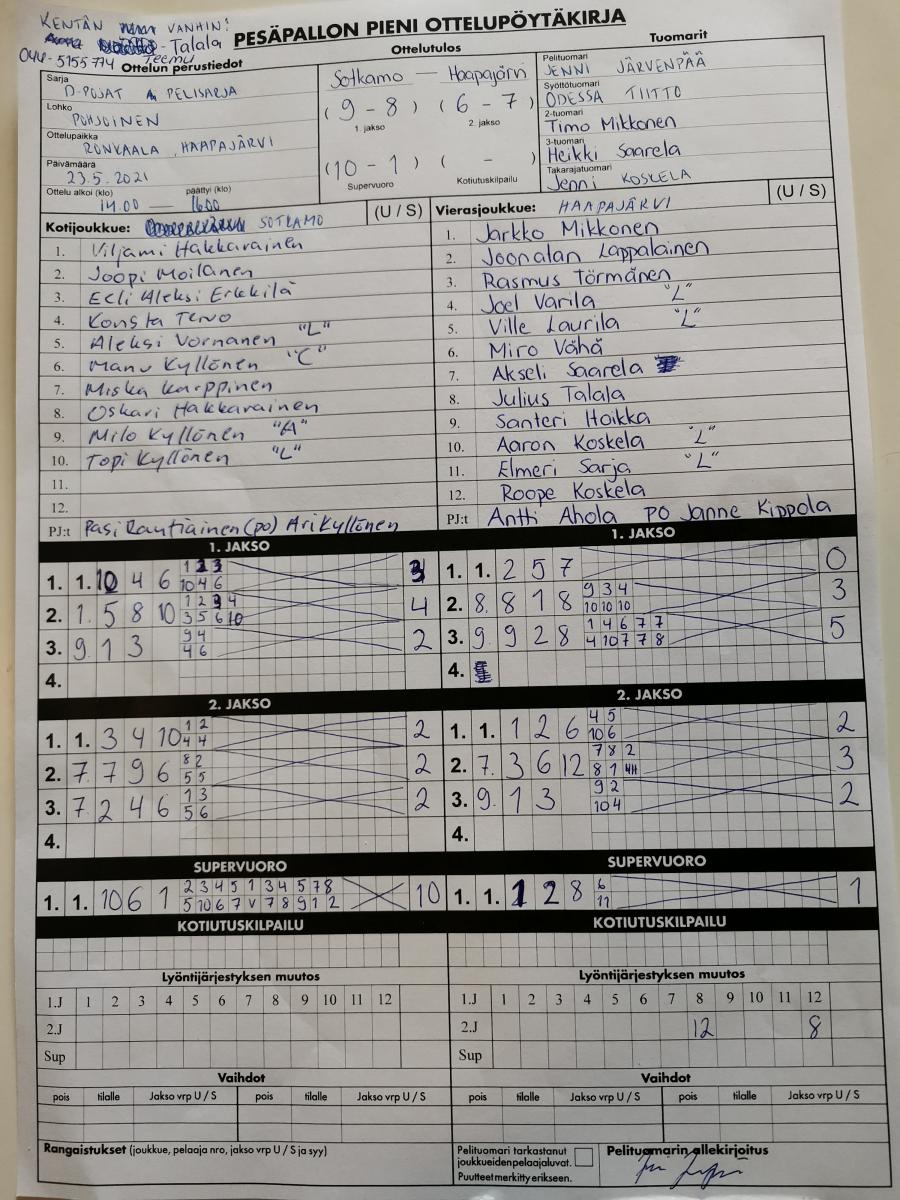 KENTÄN VANHIN:
Talala
044-5155774 Teemu
PESÄPALLON PIENI OTTELUPÖYTÄKIRJA
Ottelun perustiedot
Sarja
D-POJAT PELISARJA
Lohko
POHJOINEN
Ottelupaikka
RONKAALA, HAAPAJÄRVI
Päivämäärä
23.5.2021
Ottelu alkoi (klo) päättyi (klo)
14.00 — 1600
Ottelutulos
Sotkamo — Haapajärvi
(9 - 8) (6 - 7)
1. jakso 2. jakso
(10 - 1) ( - )
Supervuoro Kotiutuskilpailu
Tuomarit
Pelituomari
JENNI JÄRVENPÄÄ
Syöttötuomari
ODESSA TIITTO
2-tuomari
Timo Mikkonen
3-tuomari
Heikki Saarela
Takarajatuomari
Jenni KOSKELA
Kotijoukkue: SOTKAMO (U / S)
1. Viljami Hakkarainen
2. Joopi Moilanen
3. Eeli Aleksi Erkkilä
4. Konsta Tervo
5. Aleksi Vornanen "L"
6. Manu Kyllönen "C"
7. Miska Karppinen
8. Oskari Hakkarainen
9. Milo Kyllönen "A"
10. Topi Kyllönen "L"
11.
12.
PJ:t Pasi Rautiainen (po) Ari Kyllönen
Vierasjoukkue: HAAPAJÄRVI (U / S)
1. Jarkko Mikkonen
2. Joonalan Lappalainen
3. Rasmus Törmänen
4. Joel Varila "L"
5. Ville Laurila "L"
6. Miro Vähä
7. Akseli Saarela
8. Julius Talala
9. Santeri Hoikka
10. Aaron Koskela "L"
11. Elmeri Sarja "L"
12. Roope Koskela
PJ:t Antti Ahola PO Janne Kippola
1. JAKSO
1 2 3
1. 1. 10 4 6 3
10 4 6
1 2 3 4
2. 1. 5 8 10 4
3 5 6 10
9 4
3. 9. 1 3 2
4 6
4.
1. JAKSO
1. 1. 2 5 7 0
9 3 4
2. 8. 8 1 8 3
10 10 10
1 4 6 7 7
3. 9. 9 2 8 5
4 10 7 7 8
4.
2. JAKSO
1 2
1. 1. 3 4 10 2
4 4
8 2
2. 7. 7 9 6 2
5 5
1 3
3. 7. 2 4 6 2
5 6
4.
2. JAKSO
4 5
1. 1. 1 2 6 2
10 6
7 8 2
2. 7. 3 6 12 3
8 1
9 2
3. 9. 1 3 2
10 4
4.
SUPERVUORO
2 3 4 5 1 3 4 5 7 8
1. 1. 10 6 1 10
5 10 6 7 V 7 8 9 1 2
SUPERVUORO
6
1. 1. 1 2 8 1
11
KOTIUTUSKILPAILU
KOTIUTUSKILPAILU
Lyöntijärjestyksen muutos
1.J 1 2 3 4 5 6 7 8 9 10 11 12
2.J
Sup
Lyöntijärjestyksen muutos
1.J 1 2 3 4 5 6 7 8 9 10 11 12
2.J 12 8
Sup
Vaihdot
pois tilalle Jakso vrp U / S pois tilalle Jakso vrp U / S
Vaihdot
pois tilalle Jakso vrp U / S pois tilalle Jakso vrp U / S
Rangaistukset (joukkue, pelaaja nro, jakso vrp U / S ja syy)
Pelituomari tarkastanut
joukkueiden pelaajaluvat.
Puutteet merkitty erikseen.
Pelituomarin allekirjoitus